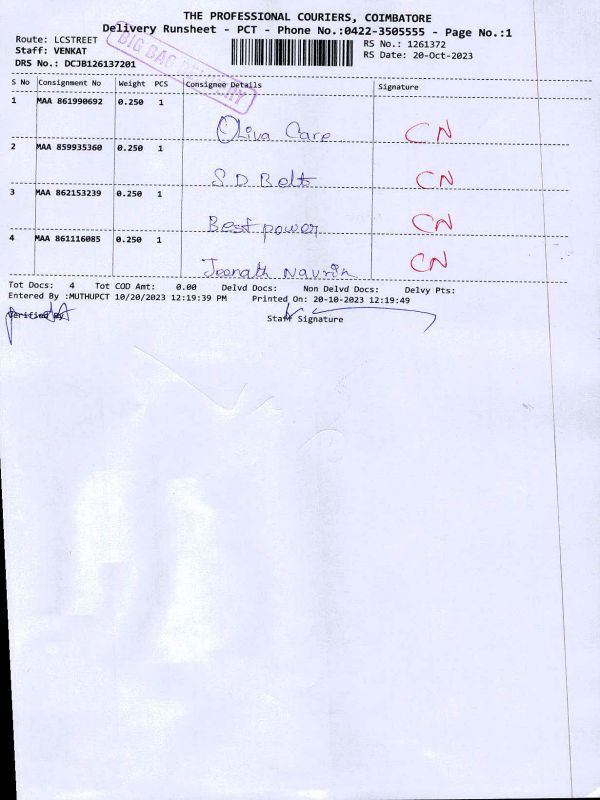 THE PROFESSIONAL COURIERS, COIMBATORE
Delivery Runsheet - PCT - Phone No.:0422-3505555 - Page No.:1
Route: LCSTREET
Staff: VENKAT
DRS No.: DCJB126137201
BIG BAG DELIVERY
RS No.: 1261372
RS Date: 20-Oct-2023
S No Consignment No Weight PCS Consignee Details Signature
1 MAA 861990692 0.250 1
Oliva Care CN
2 MAA 859935360 0.250 1
S.D. Belts CN
3 MAA 862153239 0.250 1
Best power CN
4 MAA 861116085 0.250 1
Jeenath Navrin CN
Tot Docs: 4 Tot COD Amt: 0.00 Delvd Docs: Non Delvd Docs: Delvy Pts:
Entered By :MUTHUPCT 10/20/2023 12:19:39 PM Printed On: 20-10-2023 12:19:49
Verified By Staff Signature